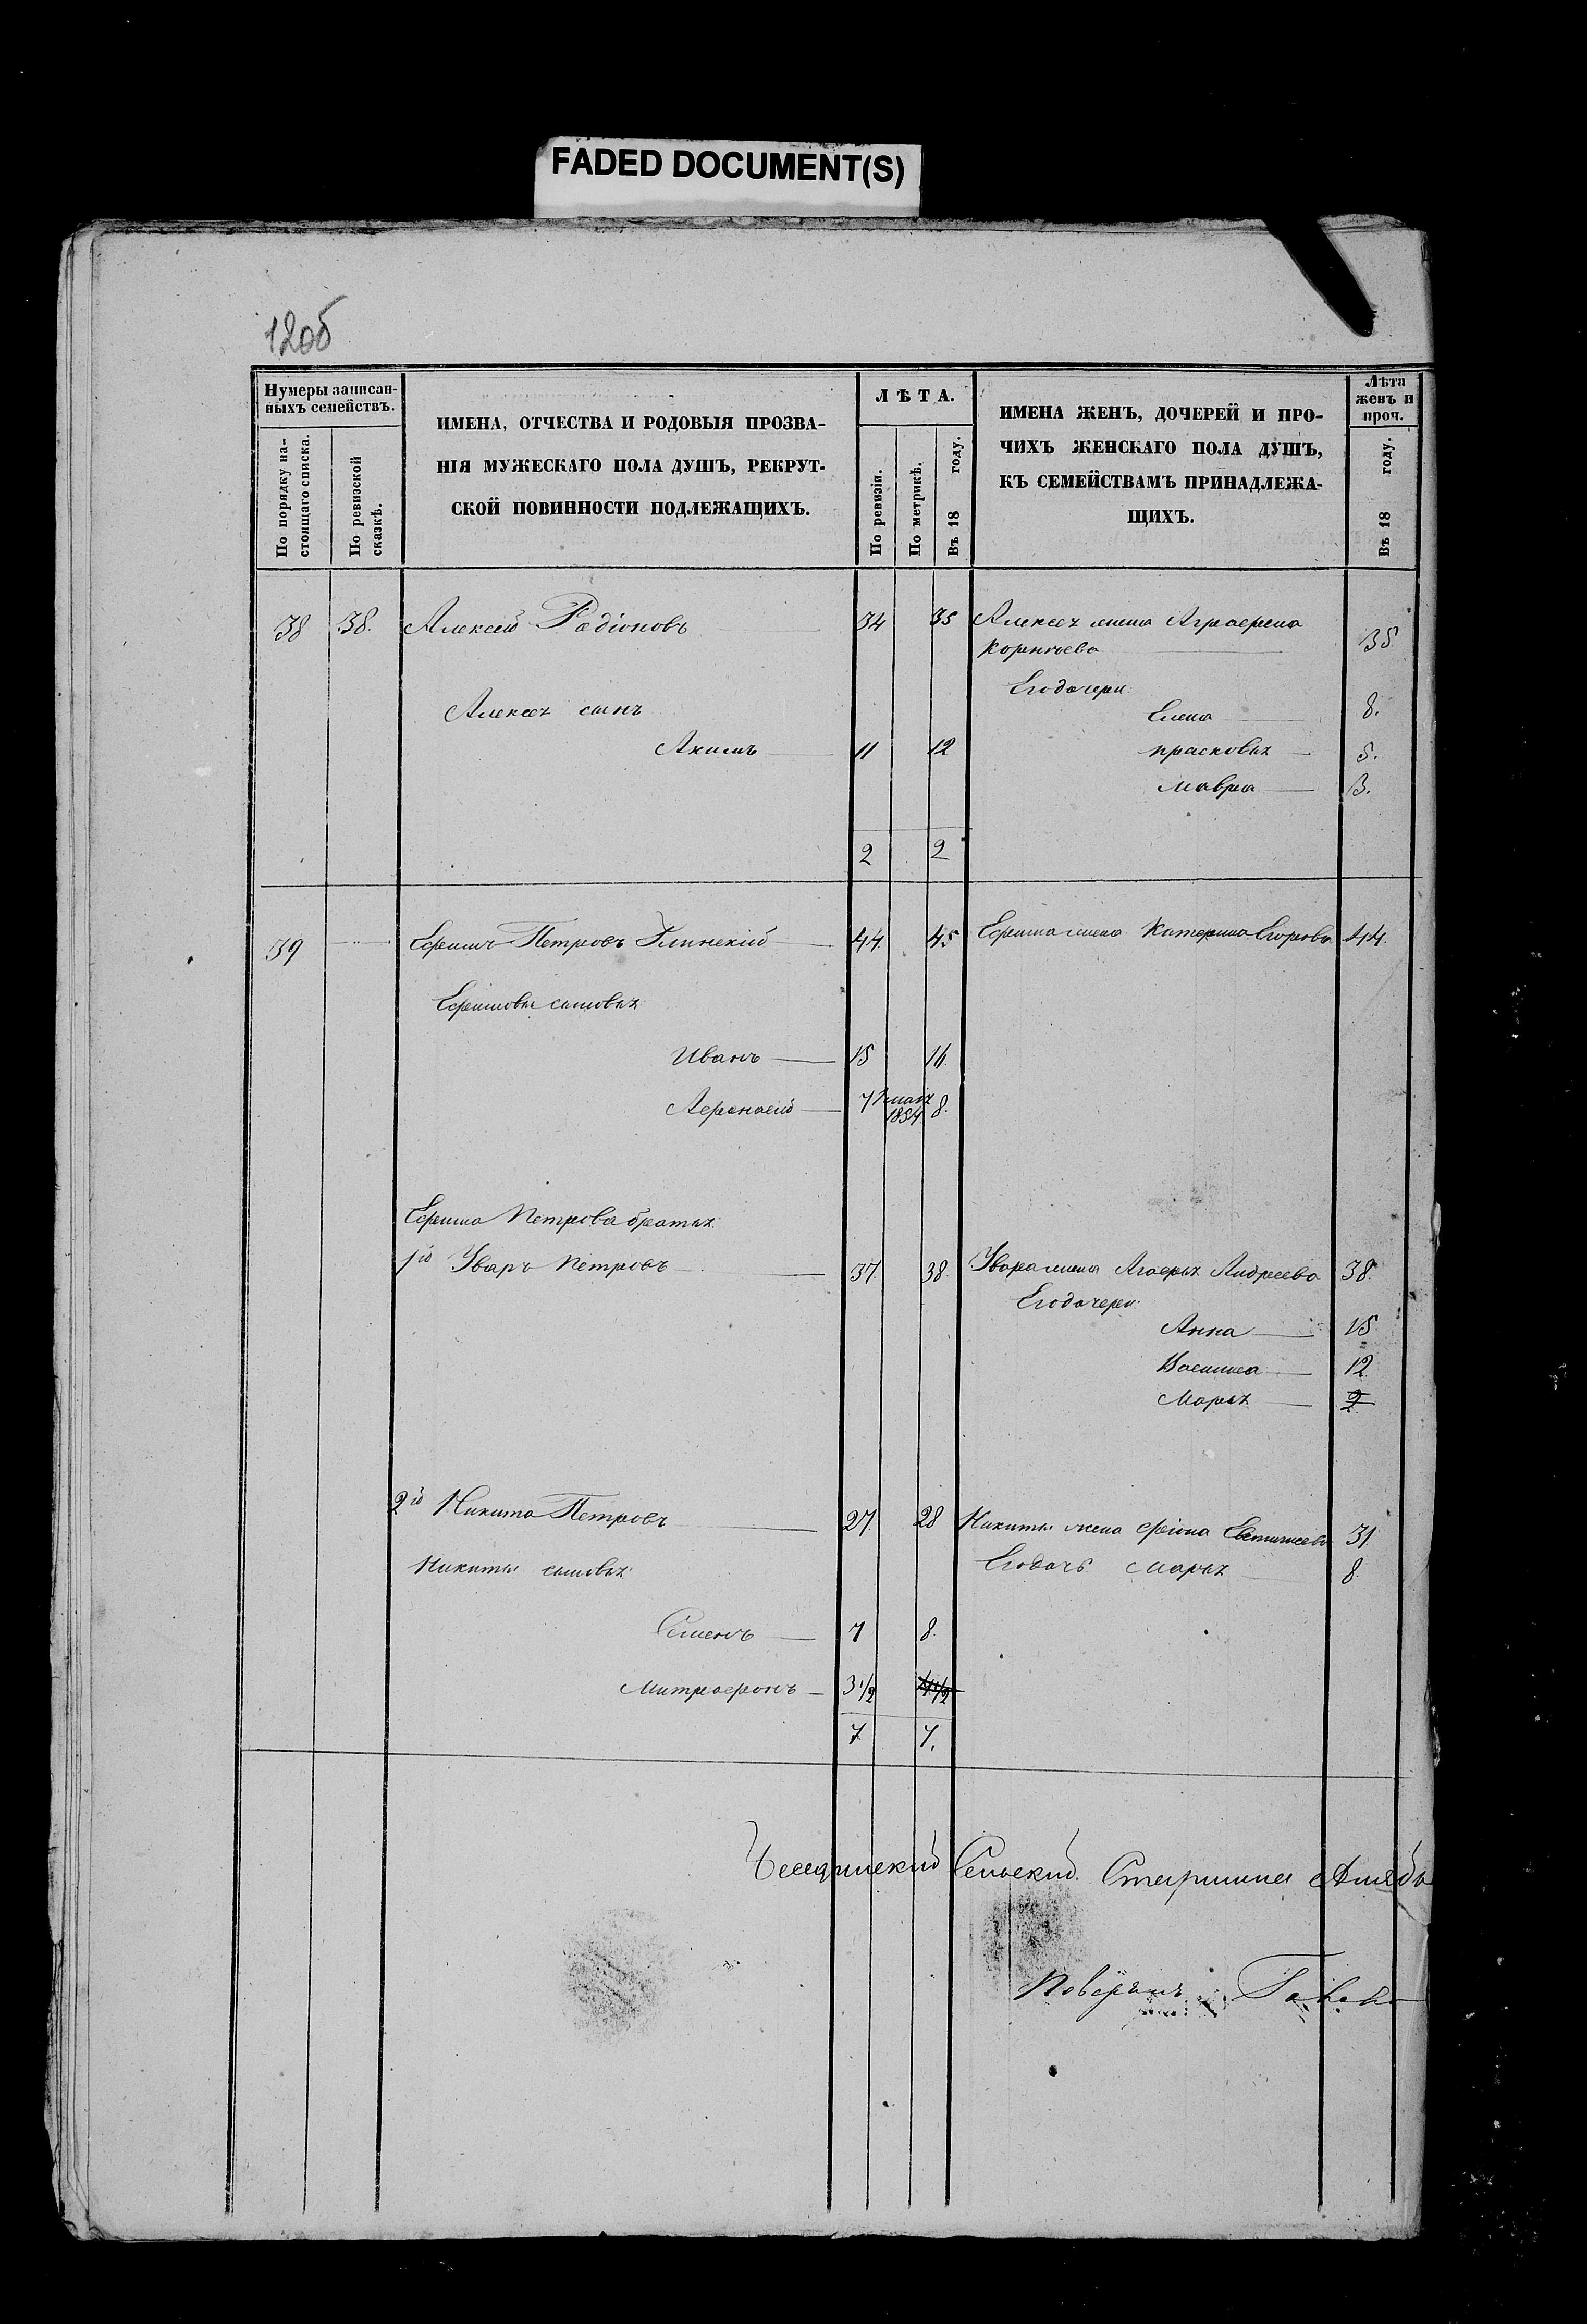 FADED DOCUMENT(S)
120б
Нумеры записан-
ныхъ семействъ.
По порядку на-
стоящаго списка.
По ревизской
сказкѣ.
ИМЕНА, ОТЧЕСТВА И РОДОВЫЯ ПРОЗВА-
НІЯ МУЖЕСКАГО ПОЛА ДУШЪ, РЕКРУТ-
СКОЙ ПОВИННОСТИ ПОДЛЕЖАЩИХЪ.
ЛѢТА.
По ревизіи.
По метрикѣ.
Въ 18 году.
ИМЕНА ЖЕНЪ, ДОЧЕРЕЙ И ПРО-
ЧИХЪ ЖЕНСКАГО ПОЛА ДУШЪ,
КЪ СЕМЕЙСТВАМЪ ПРИНАДЛЕЖА-
ЩИХЪ.
Лѣта
женъ и
проч.
Въ 18 году.
38 38. Алексей Радіоновъ 34 35 Алексея жена Аграфена
Корнѣева 35
Его дочери:
Алексея сынъ
Елена 8.
Акимъ 11 12 прасковья 5.
мавра 3.
2 2
39 Ефимъ Петровъ Глинскій 44 45 Ефима жена Катерина Егорова 44.
Ефимовы сыновья
Иванъ 15 16
Афанасій 7 1854 8.
Ефима Петрова братья
1й Уваръ Петровъ 37. 38. Увара жена Агафья Андреева 38.
Его дочери:
Анна 15
12
Марья 2
2й Никита Петровъ 27. 28 Никиты жена 31
Никиты сыновья Его дочь Марья 8.
Семенъ 7 8.
Митрофонъ 3 1/2 4 1/2
7 7.
Сельскій Старшина